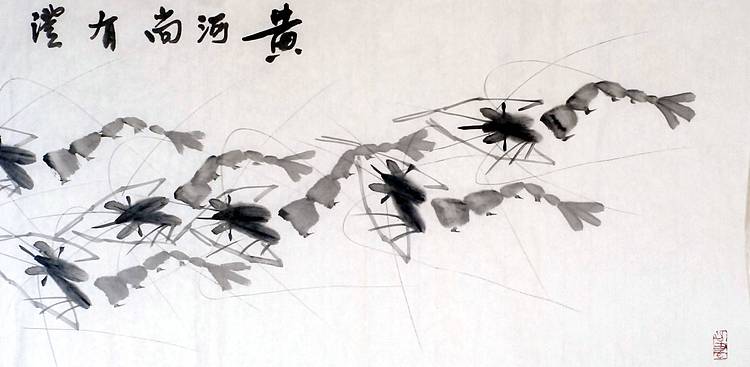 黄河尚有澄